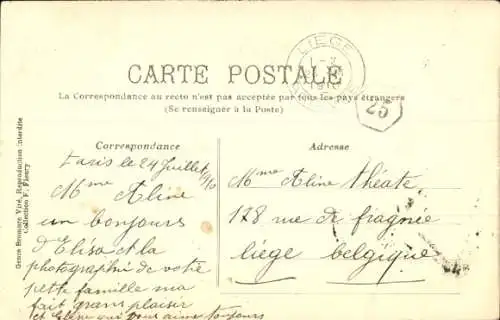 LIEGE
1910
CARTE POSTALE
25
La Correspondance au recto n'est pas acceptée par tous les pays étrangers
(Se renseigner à la Poste)
Correspondance
Paris le 24 Juillet/10
Mme Aline
un bonjours
d'Elisa et la
photographie de votre
petite famille ma
fait grans plaisir
et Eline qui vous aime toujours
Adresse
Mme Aline théate
178 rue de fragnée
liége belgique
Genre Bromure Viré, Reproduction interdite
Collection F. Fleury